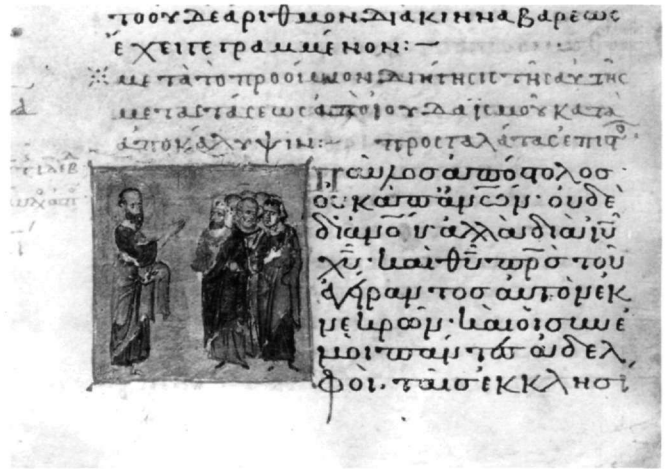 τοου δε αριθμον δια κινναβαρεως
ἔχει γεγραμμένον:—
※ μετὰ τὸ προοίμιον διήγησις τῆς αὐτῆς
μεταστάσεως ἀπὸ ἰουδαϊσμοῦ κατὰ
ἀποκάλυψιν:— πρὸς γαλάτας ἐπισ
παῦλος ἀπόστολος
οὐκ ἀπ ἀν̅ω̅ν̅· οὐδὲ
δι ἀν̅ο̅υ̅ ἀλλὰ διὰ ιυ̅
χυ̅· καὶ θυ̅ π̅ρ̅ς̅ τοῦ
ἐγείραντος αὐτὸν ἐκ
νεκρῶν· καὶ οἱ σὺν ἐ
μοὶ πάντες ἀδελ
φοὶ· ταῖς ἐκκλησί